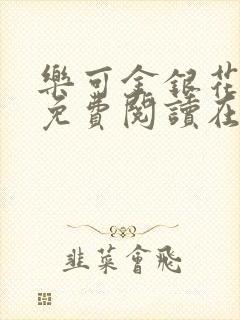 樂可金銀花
免費閱讀在
韭菜會飛